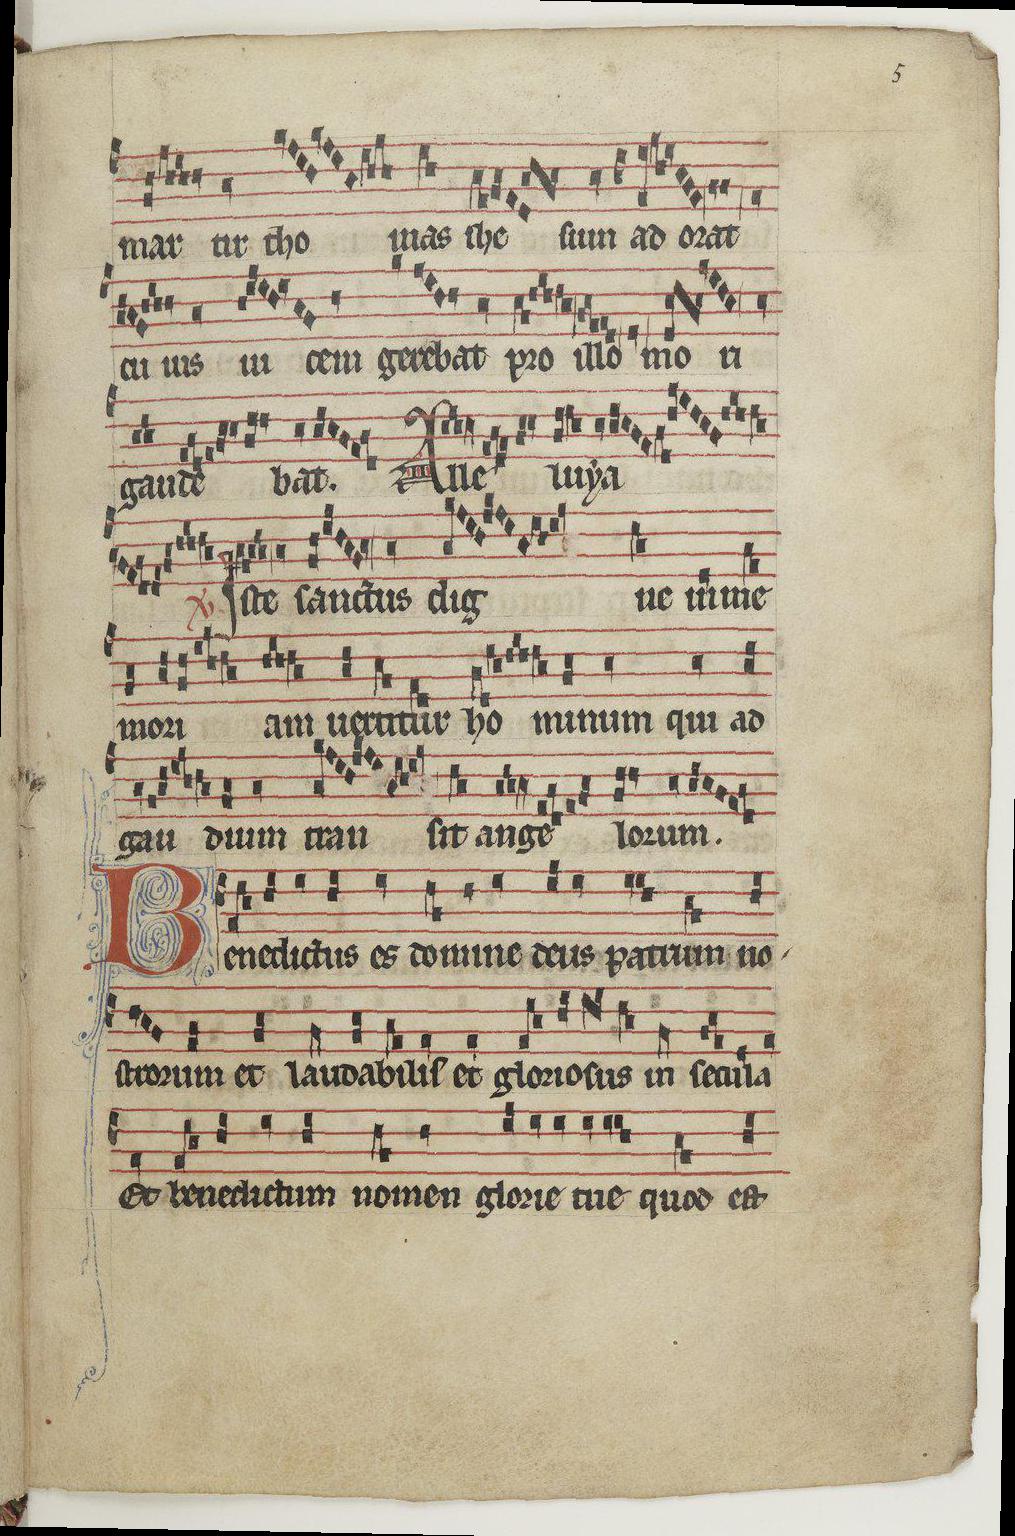 5
mar tir tho mas ihe sum ad orat
cu ius ui cem gerebat pro illo mo ri
gaude bat. Alle luÿa
℣ Iste sanctus dig ne in me
mori am uertitur ho minum qui ad
gau dium tran sit ange lorum.
Benedictus es domine deus patrum no
strorum et laudabilis et gloriosus in secula
Et benedictum nomen glorie tue quod est